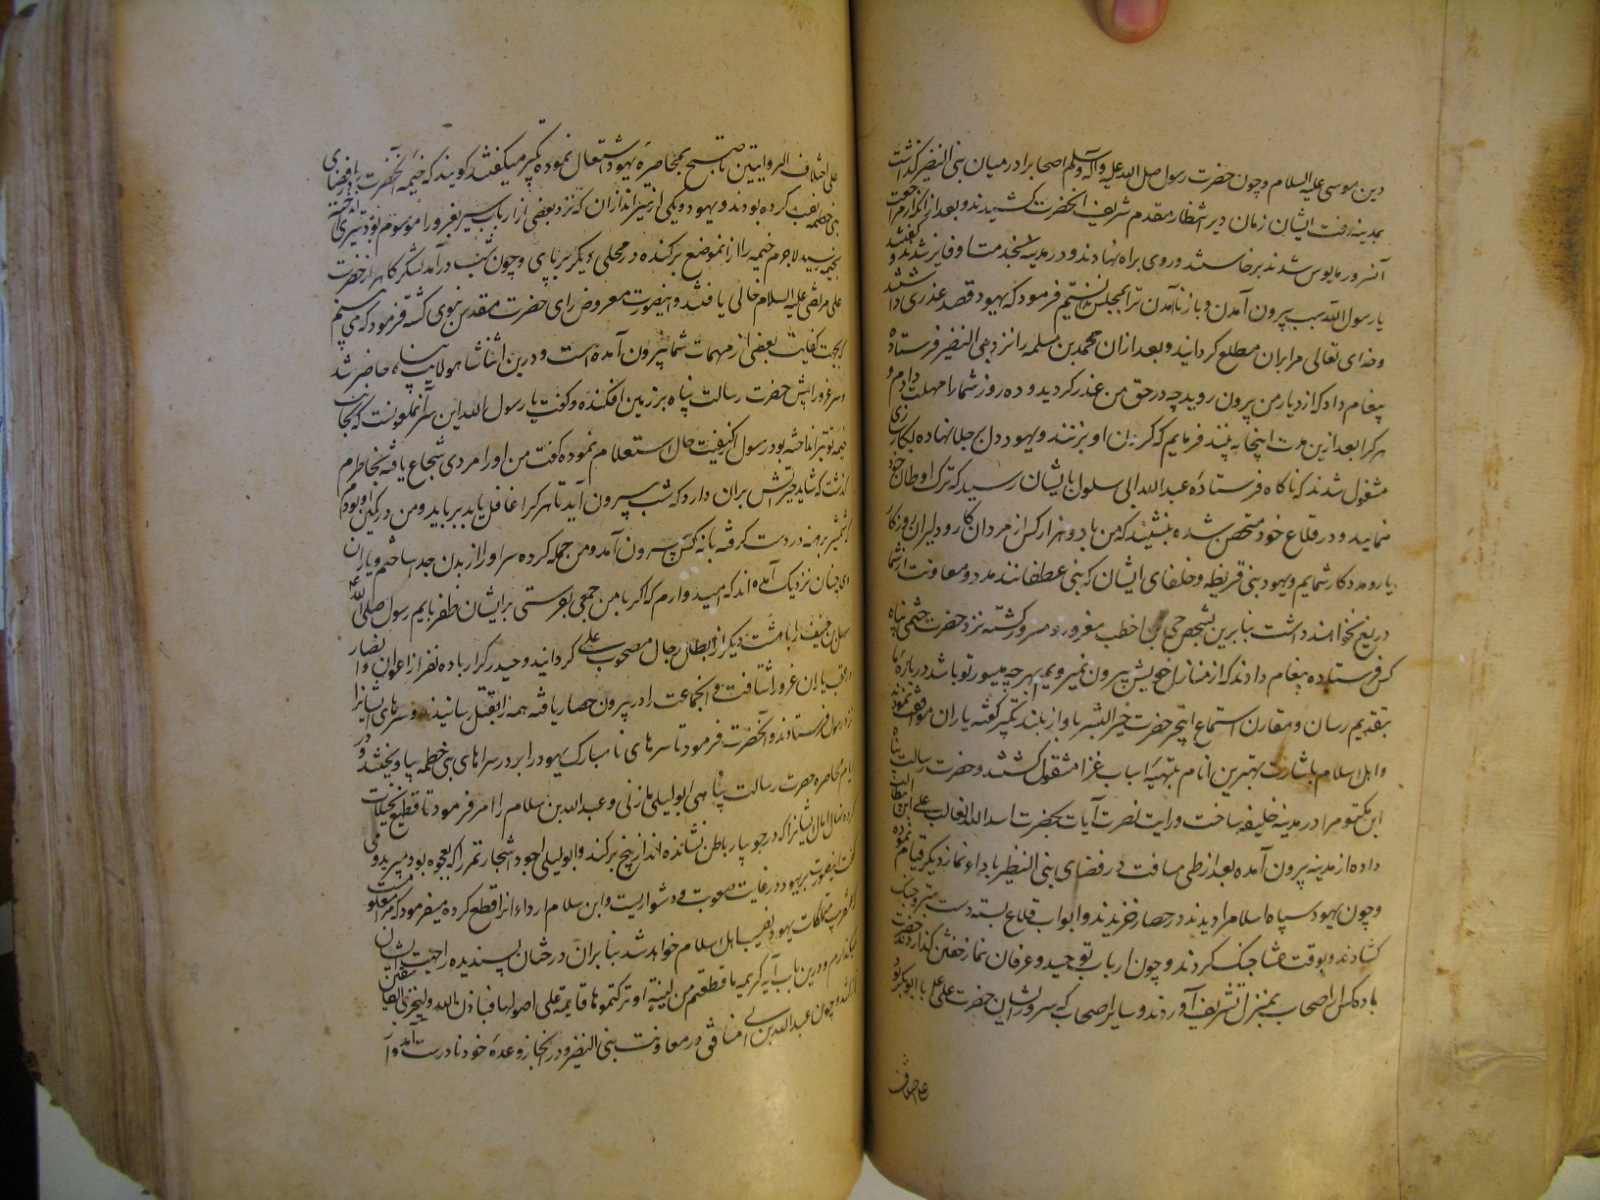 دین موسی علیه السلام و چون حضرت رسول صلی الله علیه وآله وسلم اصحابرا در میان بنی النضیر کذاشت
بمدینه رفت ایشان زمان دیر انتظار مقدم شریف انحضرت کشیدند و بعد از انکه از مراجعت
آنسرور مایوس شدند برخاستند و روی براه نهادند و در مدینه بخدمت او فایز شدند و گفتند
یا رسول الله سبب بیرون آمدن و باز نا آمدن ترا بمجلس ندانستیم فرمود که یهود قصد غدری داشتند
و خدای تعالی مرا بران مطلع کردانید و بعد از ان محمد بن مسلمه را نزد بنی النضیر فرستاده
پیغام داد که از دیار من بیرون روید چه در حق من غدر کردید و ده روز شما را مهلت دادم و
هر کرا بعد ازین مدت اینجا به بینند فرمایم که کردن او بزنند و یهود دل بر جلا نهاده بکار سازی
مشغول شدند که ناکاه فرستادهٔ عبد الله ابی سلول بایشان رسید که ترک اوطان خود
منمایید و در قلاع خود متحصن شده بنشینید که من با دو هزار کس از مردان کار و دلیران روزکار
یار و مددکار شمایم و یهود بنی قریظه و حلفای ایشان که بنی غطفانند مدد و معاونت از شما
دریغ نخواهند داشت بنابرین حیی بن اخطب مغرور و مسرور کشته نزد حضرت ختمی پناه
کس فرستاده پیغام دادند که از منازل خویش بیرون نمیرویم هر چه میسور تو باشد دربارهٔ ما
بتقدیم رسان و مقارن استماع این خبر حضرت خیر البشر باواز بلند تکبیر کفته یاران موافقت نمودند
و اهل اسلام باشارت بهترین انام بتهیهٔ اسباب غزا مشغول کشتند و حضرت رسالت پناه
ابن مکتوم را در مدینه خلیفه ساخت و رایت نصرت آیات بحضرت اسد الله الغالب علی ابن ابی طالب
داده از مدینه بیرون آمده بعد از طی مسافت در فضای بنی النضیر باداء نماز دیکر قیام نموده
و چون یهود سپاه اسلام را دیدند در حصار خزیدند و ابواب قلاع بسته دست بتیر و جنک
کشادند و بوقت عشا جنک کردند و چون ارباب توحید و عرفان نماز خفتن کذاردند حضرت
با ده کس از اصحاب بمنزل تشریف آوردند و سایر اصحاب که سرور ایشان حضرت علی یا ابو بکر بود
علی اختلاف
علی اختلاف الروایتین تا صبح بمحاصرهٔ یهود اشتغال نموده تکبیر میکفتند کویند که خیمه آنحضرت در فضای
بنی خطمه نصب کرده بودند و یهود و یکی از تیر اندازان که نزد بعضی از ارباب سیر بغرور موسوم بود تیری انداخت
بخیمه رسید لاجرم خیمه را از انموضع برکنده در محلی دیکر برپای و چون شب درآمد لشکر کاه از حضرت
علی مرتضی علیه السلام خالی یافتند و اینصورت معروض رای حضرت مقدس نبوی کشته فرمود که می بینم
که بجهت کفایت بعضی از مهمات شما بیرون آمده است و درین اثنا شاه ولایت پناه حاضر شد
و سر غرور را پیش حضرت رسالت پناه بر زمین افکنده و کفت یا رسول الله این سر آن ملعونست که بجانب
خیمه تو تیر انداخته بود رسول از کیفیت حال استعلام نموده کفت من او را مردی شجاع یافته بخاطرم
کذشت که شاید جراتش بران دارد که شب بیرون آید تا هر کرا غافل یابد برباید و من در کمین او بودم
که شمشیر برهنه در دست کرفته با نه کس بیرون آمد و من حمله کرده سر او را از بدن جدا ساختم و یاران
او چنان نزدیک آمده اند که امیدوارم که اکر با من جمعی بفرستی بر ایشان ظفر یابم رسول صلی الله
سهل بن حنیف را با هشت دیکر از ابطال رجال مصحوب علی کردانید و حیدر کرار با ده نفر از اعوان و انصار
در عقب یاران غرور شتافت و انجماعت را در بیرون حصار یافته همه را بقتل رسانیدند و سرهای ایشانرا
نزد رسول فرستادند و آنحضرت فرمود تا سرهای نامبارک یهود را بر در سراهای بنی خطمه بیاویختند و در
ایام محاصره حضرت رسالت پناهی ابو لیلی مازنی و عبد الله بن سلام را امر فرمود تا قطع نخیلات
کرده نهال امال ایشانرا که در جویبار باطن نشانده اند از بیخ برکنند و ابو لیلی اجود اشجار تمر را که عجوه بود میبرید و می
کفت اینصورت بر یهود در غایت صعوبت و دشواریست و ابن سلام ارداء انرا قطع کرده میفرمود که مرا معلومست
که عنقریب متملکات یهود نصیب اهل اسلام خواهد شد بنابران درختان پسندیده را جهت ایشان
میکذارم و درین باب آیه کریمه ما قطعتم من لینة او ترکتموها قایمة علی اصولها فباذن الله و لیخزی الفاسقین
نازل شد و چون عبد الله بن ابی منافق در معاونت بنی النضیر و در انجاز وعدهٔ خود نا درست آمد و آ